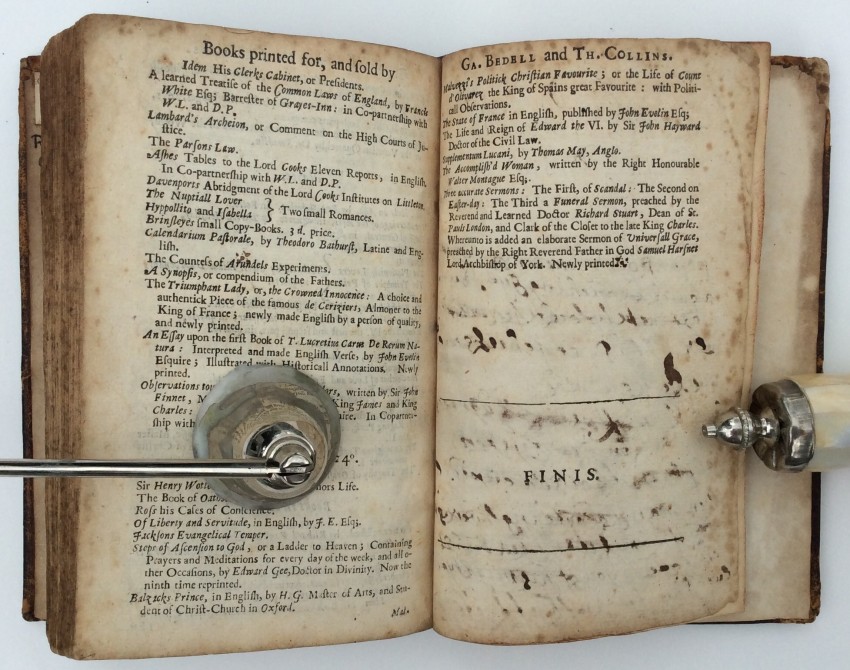 Books printed for, and ſold by
Idem His Clerks Cabinet, or Preſidents.
A learned Treatiſe of the Common Laws of England, by Francis
White Eſq; Barreſter of Grayes-Inn: in Co-partnerſhip with
W.L. and D.P.
Lambard's Archeion, or Comment on the High Courts of Ju-
ſtice.
The Parſons Law.
Aſhes Tables to the Lord Cooks Eleven Reports, in Engliſh.
In Co-partnerſhip with W.L. and D.P.
Davenports Abridgment of the Lord Cooks Inſtitutes on Littleton.
The Nuptiall Lover
Hyppolito and Iſabella } Two ſmall Romances.
Brinſleyes ſmall Copy-Books. 3 d. price.
Calendarium Paſtorale, by Theodoro Bathurſt, Latine and Eng-
liſh.
The Counteſs of Arundels Experiments.
A Synopſis, or compendium of the Fathers.
The Triumphant Lady, or, the Crowned Innocence: A choice and
authentick Piece of the famous de Ceriziers, Almoner to the
King of France; newly made Engliſh by a perſon of quality,
and newly printed.
An Eſſay upon the firſt Book of T. Lucretius Carus De Rerum Na-
tura: Interpreted and made Engliſh Verſe, by John Evelin
Eſquire; Illuſtrated with Hiſtoricall Annotations. Newly
printed.
Obſervations written by Sir John
Finnet, King James and King
Charles: In Copartner-
ſhip with
4°.
Sir Henry Life.
The Book of
Roſs his Caſes of Conſcience.
Of Liberty and Servitude, in Engliſh, by J. E. Eſq;
Jackſons Evangelical Temper.
Steps of Aſcenſion to God, or a Ladder to Heaven; Containing
Prayers and Meditations for every day of the week, and all o-
ther Occaſions, by Edward Gee, Doctor in Divinity. Now the
ninth time reprinted.
Balzacks Prince, in Engliſh, by H. G. Maſter of Arts, and Stu-
dent of Chriſt-Church in Oxford.
Mal-
GA. BEDELL and TH. COLLINS.
Malvezzi's Politick Chriſtian Favourite; or the Life of Count
d'Olivarez the King of Spains great Favourite: with Politi-
call Obſervations.
The State of France in Engliſh, publiſhed by John Evelin Eſq;
The Life and Reign of Edward the VI. by Sir John Hayward
Doctor of the Civil Law.
Supplementum Lucani, by Thomas May, Anglo.
The Accompliſh'd Woman, written by the Right Honourable
Walter Montague Eſq;.
Three accurate Sermons: The Firſt, of Scandal: The Second on
Eaſter-day: The Third a Funeral Sermon, preached by the
Reverend and Learned Doctor Richard Stuart, Dean of St.
Pauls London, and Clark of the Cloſet to the late King Charles.
Whereunto is added an elaborate Sermon of Univerſall Grace,
preached by the Right Reverend Father in God Samuel Harſnet
Lord Archbiſhop of York. Newly printed.
FINIS.